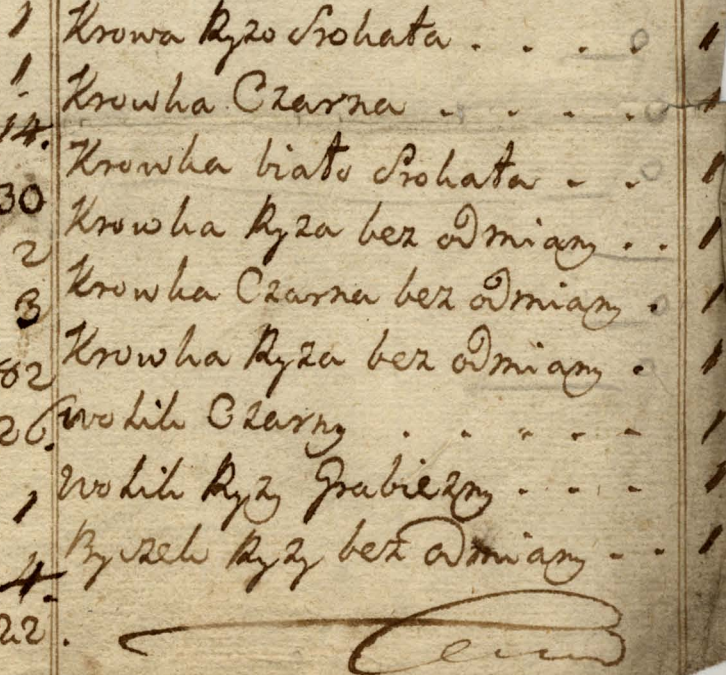 1 Krowa Ryżo Srokata . . . 0 1
1 Krowka Czarna . . . . 0 1
14. Krowka biało Srokata - . 0 1
30 Krowka Ryża bez odmiany . . 1
2 Krowka Czarna bez odmiany . 0 1
3 Krowka Ryża bez odmiany . 1
82 Wolik Czarny . . . . - 1
26. Wolik Ryży Grabiezny - - . - 1
1 Byczek Ryży bez odmiany - - 1
4.
22 .